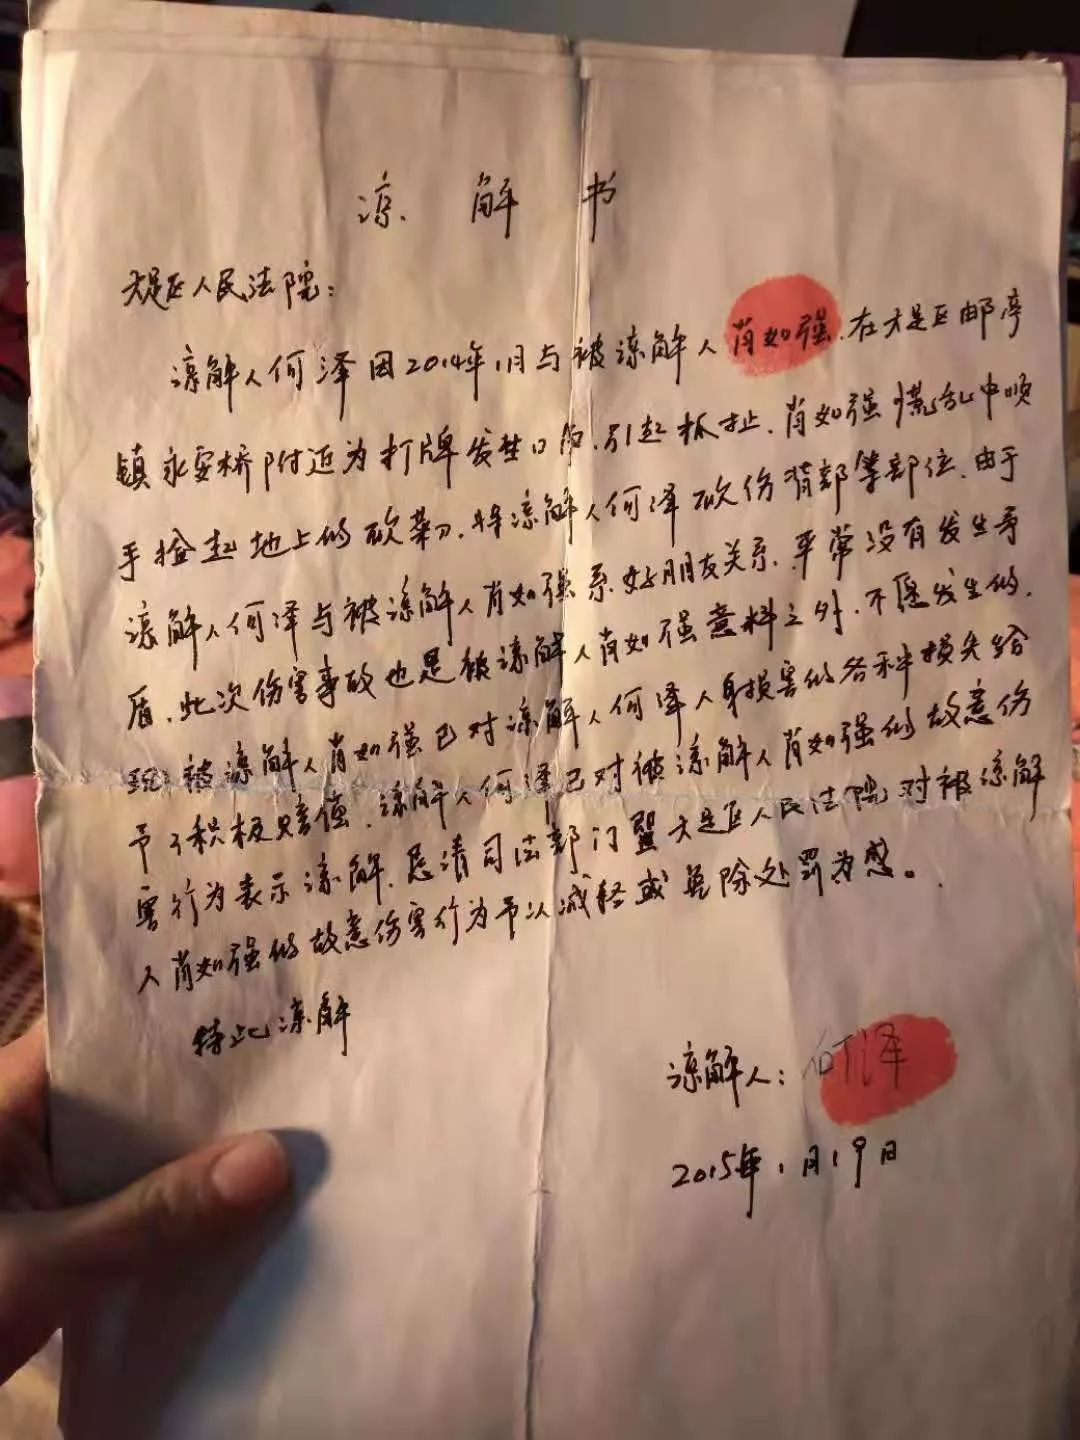 谅解书
大足区人民法院：
谅解人何泽因2014年1月与被谅解人肖如强.在大足区邮亭
镇永安桥附近为打牌发生口角.引起抓扯.肖如强慌乱中顺
手捡起地上的砍菜刀.将谅解人何泽砍伤背部等部位.由于
谅解人何泽与被谅解人肖如强系好朋友关系.平常没有发生矛
盾.此次伤害事故也是被谅解人肖如强意料之外.不愿发生的.
现被谅解人肖如强已对谅解人何泽人身损害的各种损失给
予了积极赔偿.谅解人何泽已对被谅解人肖如强的故意伤
害行为表示谅解.恳请司法部门暨大足区人民法院对被谅解
人肖如强的故意伤害行为予以减轻或免除处罚为感。
特此谅解
谅解人：何泽
2015年1月19日